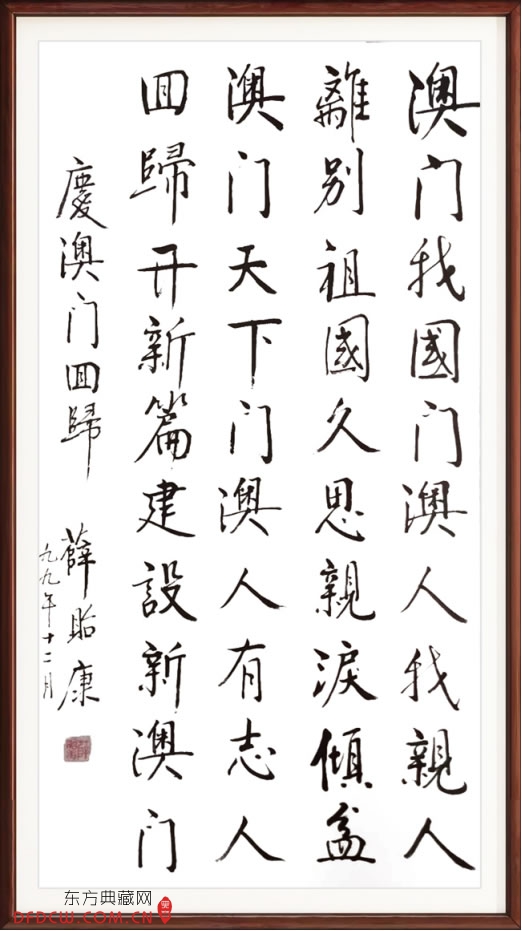 澳门我國门澳人我親人
離别祖國久思親淚傾盆
澳门天下门澳人有志人
回歸开新篇建設新澳门
慶澳门回歸
薛貽康
九九年十二月
东方典藏网
DFDCW.COM.CN